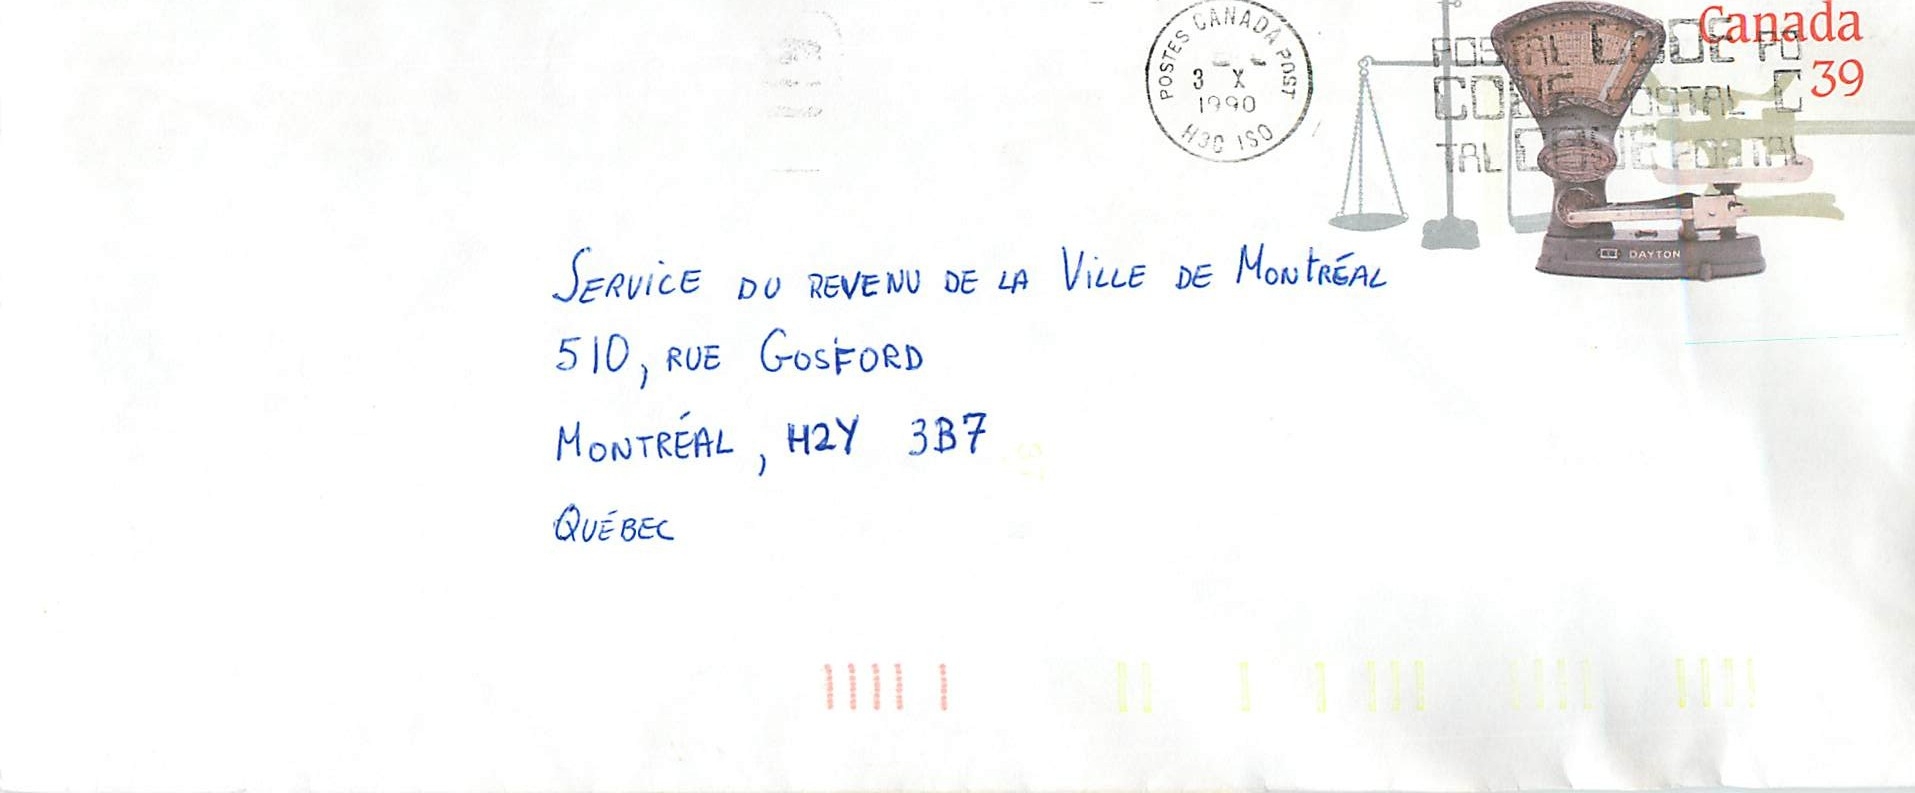 POSTES CANADA POST
3 X
1990
H3C 1S0
Canada
39
POSTAL CODE PO
CODE POSTAL C
TAL CODE POSTAL
DAYTON
SERVICE DU REVENU DE LA VILLE DE MONTRÉAL
510, RUE GOSFORD
MONTRÉAL, H2Y 3B7
QUÉBEC